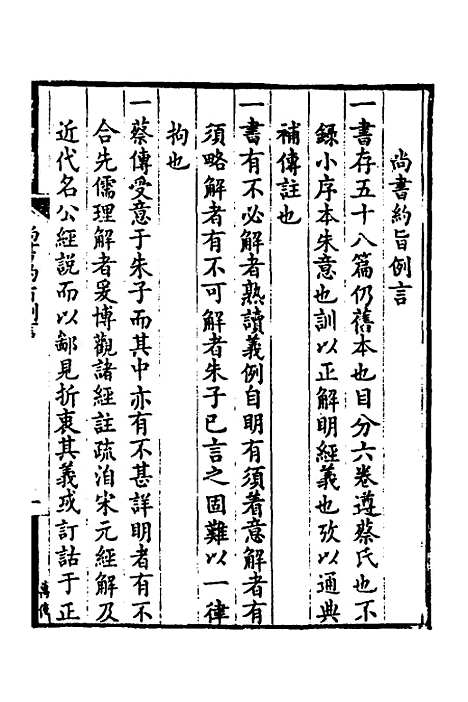 尚書約旨例言
一書存五十八篇仍舊本也目分六卷遵蔡氏也不
錄小序本朱意也訓以正解明經義也攷以通典
補傳註也
一書有不必解者熟讀義例自明有須著意解者有
須略解者有不可解者朱子已言之固難以一律
拘也
一蔡傳受意于朱子而其中亦有不甚詳明者有不
合先儒理解者爰博觀諸經註疏洎宋元經解及
近代名公經說而以鄙見折衷其義或訂詁于正
尚書約旨例言
一